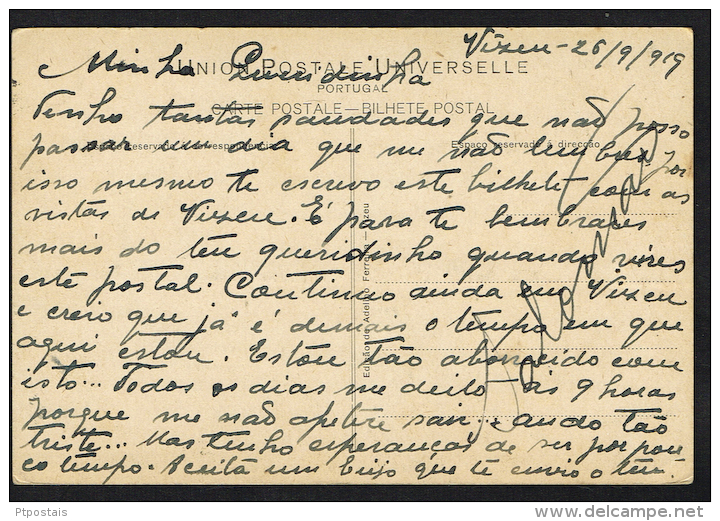 Vizeu - 26/9/919
Minha Queridinha
UNION POSTALE UNIVERSELLE
PORTUGAL
CARTE POSTALE—BILHETE POSTAL
Tenho tantas saudades que não posso
Espaço reservado à correspondencia
Espaço reservado á direcção
passar um dia que me não lembre, por
isso mesmo te escrevo este bilhete com as
vistas de Vizeu. É para te lembrares
mais do teu queridinho quando vires
este postal. Continuo ainda em Vizeu
e creio que já é demais o tempo em que
aqui estou. Estou tão aborrecido com
isto... Todos os dias me deito ás 9 horas
porque me não apetece sair... ando tão
triste... Mas tenho esperanças de ser por pou
co tempo. Aceita um beijo que te envio o teu
Edição de Adelino Ferreira—Vizeu
Ptpostais
www.delcampe.net